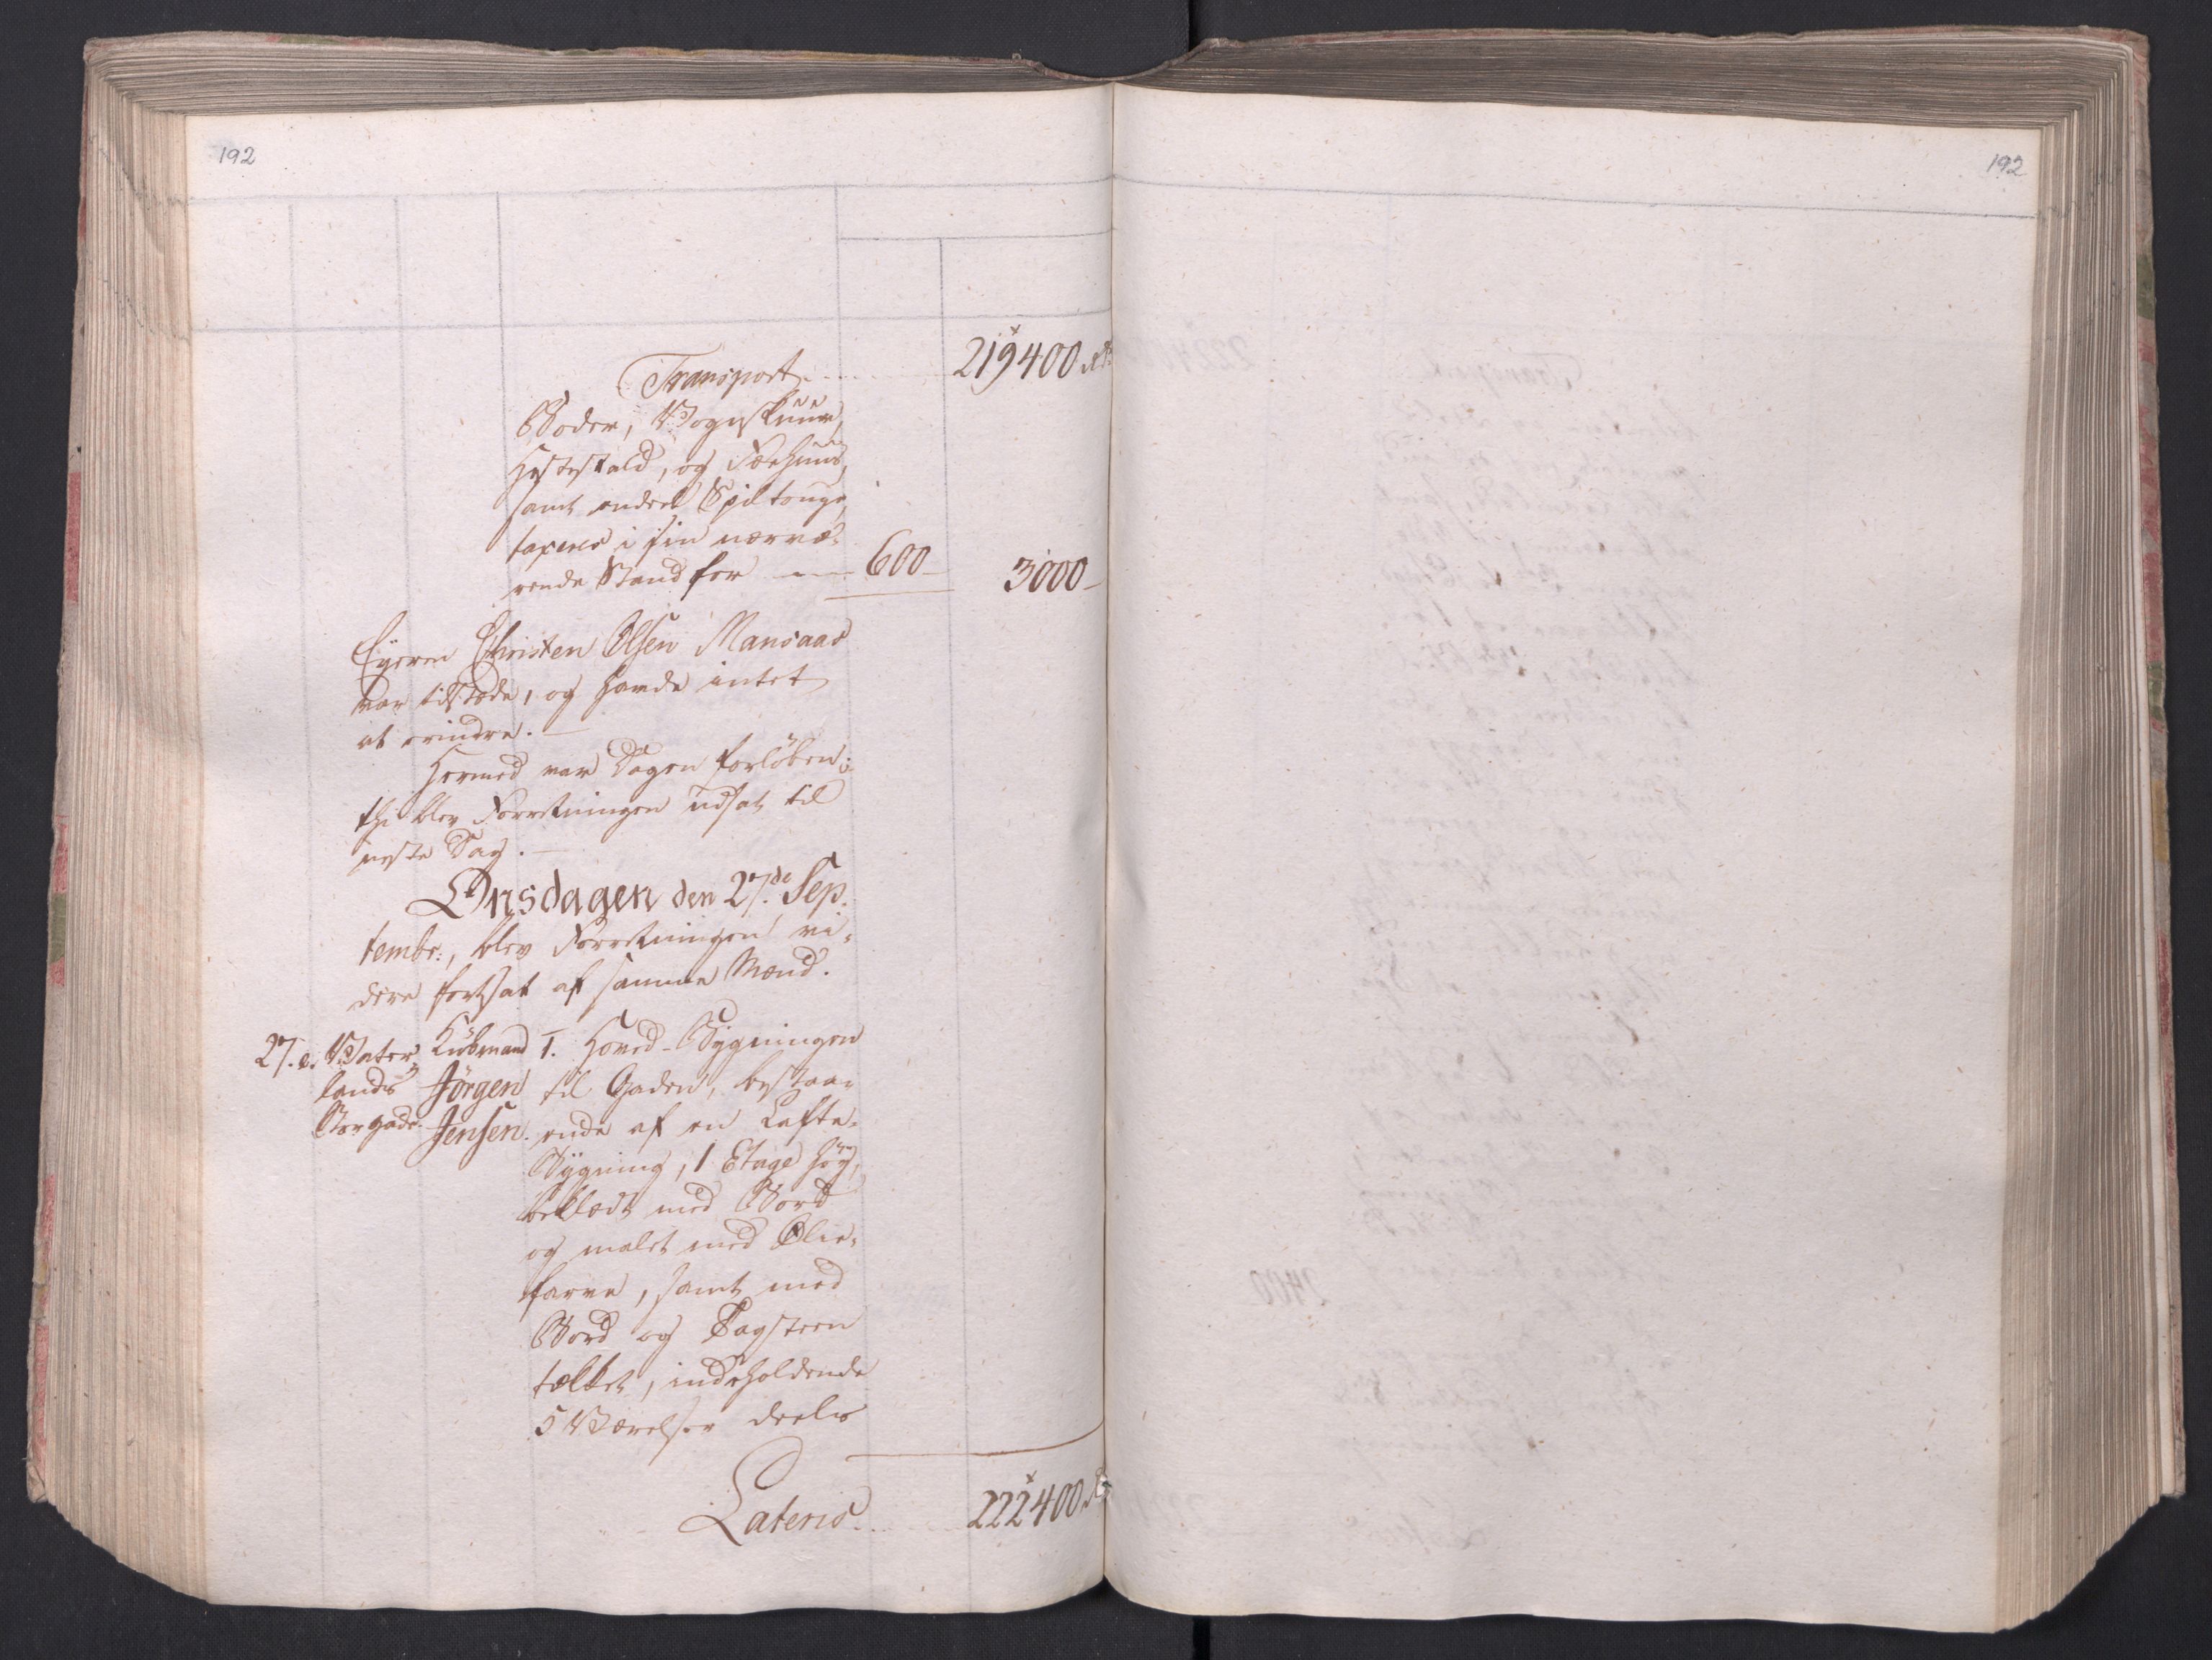 192
192
Transport 219400 Rd
Boder, Vognskuur,
Hestestald, og Fæehuus,
samt andre Spiltouge,
taxeres i sin nærvæ-
rende Stand for 600 3000
Eyeren Christen Olsen Mansaas
var tilstæde, og havde intet
at erindre.
Hermed var Dagen forløben;
thi blev Forretningen udsat til
neste Dag.
Onsdagen den 27.de Sep-
tembr:, blev Forretningen vi-
dere fortsat af samme Mænd.
27.e. Vater Kiøbmand 1. Hoved-Bygningen
lands Jörgen til Gaden, bestaa-
Storgade. Jensen. ende af en Lafte-
Bygning, 1 Etage høy,
beklædt med Bord
og malet med Olie-
farve, samt med
Bord og Tagsteen
tækket, indeholdende
5 Værelser deels
Lateris 222400 Rd